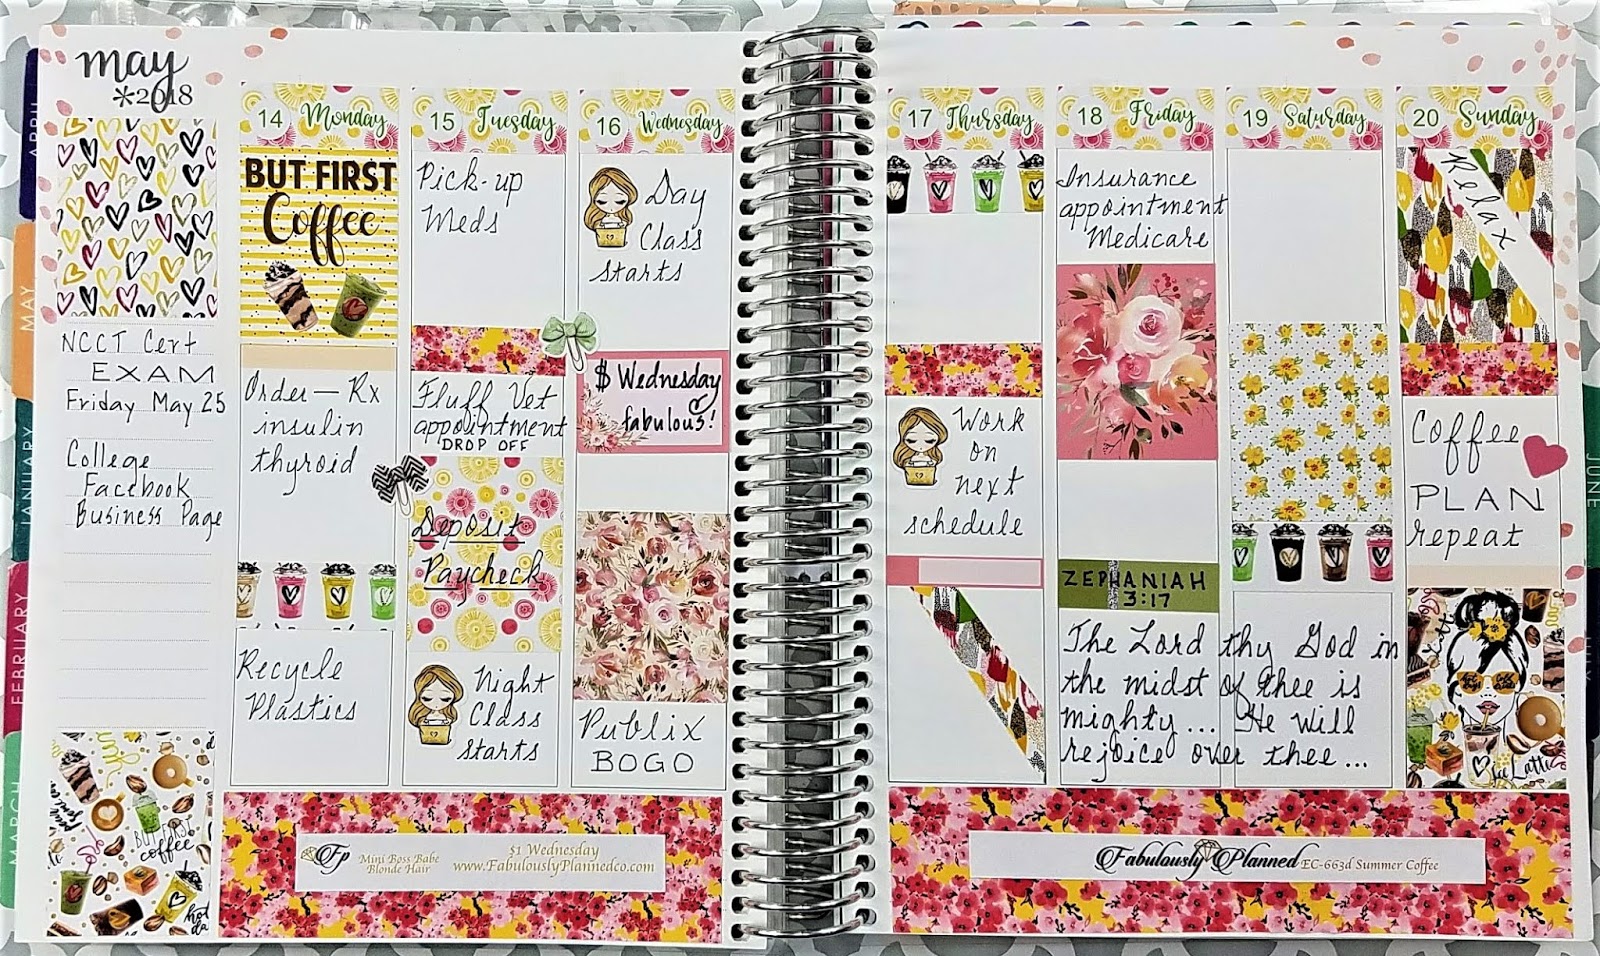 may
*2018
NCCT Cert
EXAM
Friday May 25
College
Facebook
Business Page
BUT FIRST
coffee
14 Monday
BUT FIRST
Coffee
Order — Rx
insulin
thyroid
Recycle
Plastics
15 Tuesday
Pick-up
Meds
Fluff Vet
appointment
DROP OFF
Deposit
Paycheck
Night
Class
starts
16 Wednesday
Day
Class
starts
$ Wednesday
fabulous!
Publix
BOGO
Fp
Mini Boss Babe
Blonde Hair
$1 Wednesday
www.FabulouslyPlannedco.com
17 Thursday
Work
on
next
schedule
18 Friday
Insurance
appointment
Medicare
ZEPHANIAH
3:17
The Lord thy God in
the midst of thee is
mighty... He will
rejoice over thee...
19 Saturday
20 Sunday
Relax
Coffee
PLAN
repeat
Latte
Fabulously Planned EC-663d Summer Coffee
APRIL
MAY
JANUARY
FEBRUARY
MARCH
JUNE